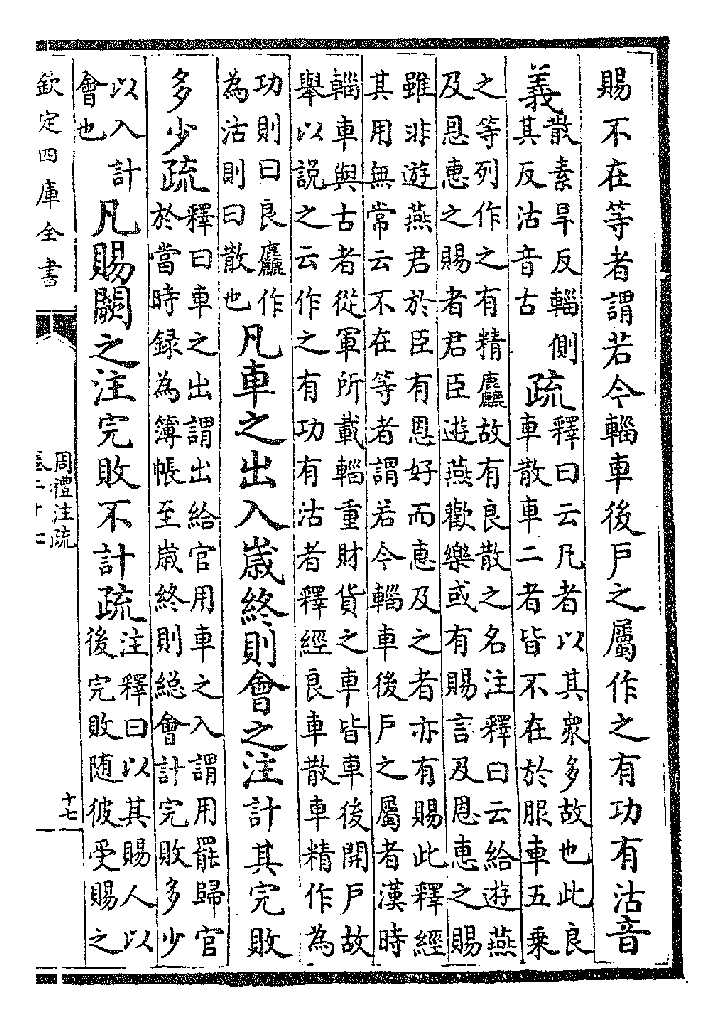 賜不在等者謂若今輜車後戶之屬作之有功有沽音
義散素旱反輜側其反沽音古疏釋曰云凡者以其衆多故也此良車散車二者皆不在於服車五乘
之等列作之有精麤故有良散之名注釋曰云給遊燕
及恩惠之賜者君臣遊燕歡樂或有賜言及恩惠之賜
雖非遊燕君於臣有恩好而惠及之者亦有賜此釋經
其用無常云不在等者謂若今輜車後戶之屬者漢時
輜車與古者從軍所載輜重財貨之車皆車後開戶故
舉以說之云作之有功有沽者釋經良車散車精作為
功則曰良麤作為沽則曰散也凡車之出入歲終則會之注計其完敗
多少疏釋曰車之出謂出給官用車之入謂用罷歸官於當時録為簿帳至歲終則總會計完敗多少
以入計會也凡賜闕之注完敗不計疏注釋曰以其賜人以後完敗隨彼受賜之
欽定四庫全書
周禮注疏
十七